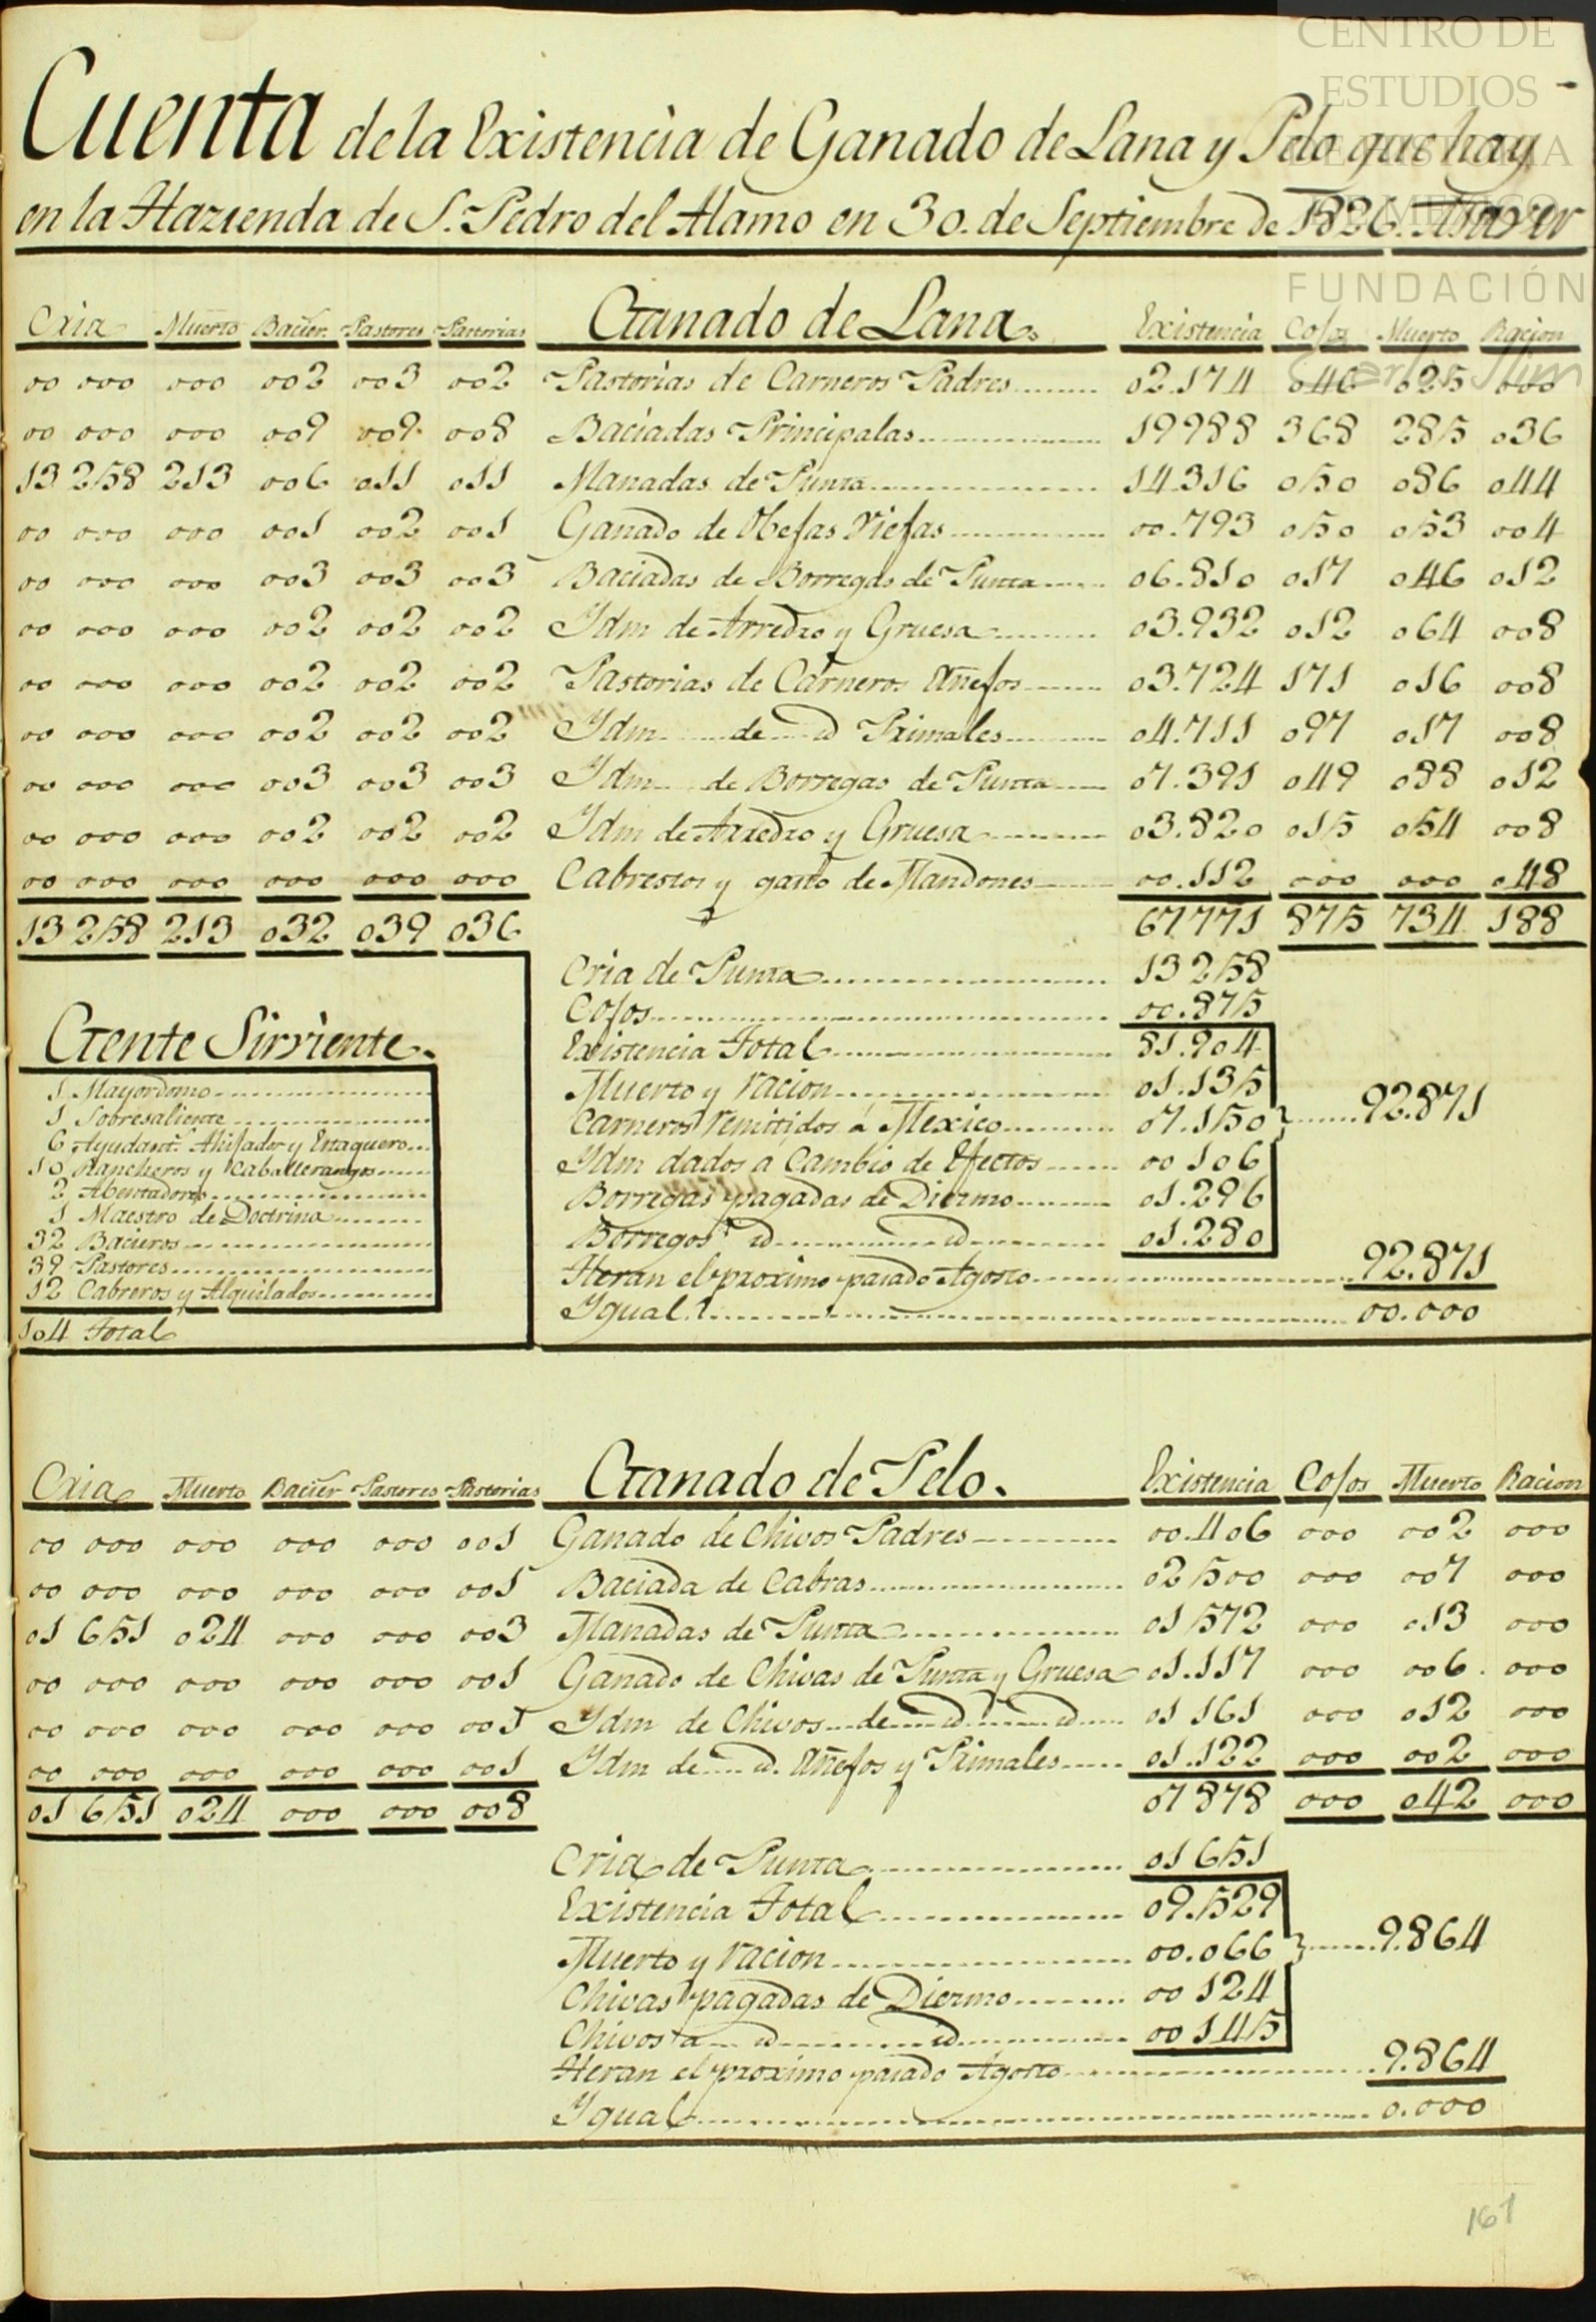 CENTRO DE
ESTUDIOS
DE HISTORIA
DE MÉXICO
FUNDACIÓN
Carlos Slim
Cuenta de la Existencia de Ganado de Lana y Pelo que hay
en la Hazienda de S. Pedro del Alamo en 30. de Septiembre de 1826. Asaver
Cria Muerto Bacier. Pastores Pastorias Ganado de Lana. Existencia Cojos Muerto Racion
00 000 000 002 003 002 Pastorias de Carneros Padres 02.174 046 025 000
00 000 000 009 009 008 Baciadas Principalas 19988 368 285 036
13 258 213 006 011 011 Manadas de Punta 14316 050 086 044
00 000 000 001 002 001 Ganado de Obejas Viejas 00.793 050 053 004
00 000 000 003 003 003 Baciadas de Borregas de Punta 06.810 017 046 012
00 000 000 002 002 002 Ydm de Arredro y Gruesa 03.932 012 064 008
00 000 000 002 002 002 Pastorias de Carneros Añejos 03.724 171 016 008
00 000 000 002 002 002 Ydm de d Primales 04.711 097 017 008
00 000 000 003 003 003 Ydm de Borregas de Punta 07.391 049 088 012
00 000 000 002 002 002 Ydm de Arredro y Gruesa 03.820 015 054 008
00 000 000 000 000 000 Cabrestos y gasto de Mandones 00.112 000 000 048
13 258 213 032 039 036 67771 875 734 188
Cria de Punta 13 258
Cojos 00.875
Existencia Total 81.904
Muerto y racion 01.135
Carneros remitidos á Mexico 07.150 92.871
Ydm dados a cambio de Efectos 00 106
Borregas pagadas de Diezmo 01.296
Borregos d d 01.280
Heran el proximo pasado Agosto 92.871
Ygual. 00.000
Gente Sirviente.
1 Mayordomo
1 Sobresaliente
6 Ayudant.s Ahijador y Estaquero
10 Rancheros y Caballerangos
2 Abentadores
1 Maestro de Doctrina
32 Bacieros
39 Pastores
12 Cabreros y Alquilados
104 Total
Cria Muerto Bacier Pastores Pastorias Ganado de Pelo. Existencia Cojos Muerto Racion
00 000 000 000 000 001 Ganado de Chivos Padres 00.406 000 002 000
00 000 000 000 000 001 Baciada de Cabras 02 500 000 007 000
01 651 024 000 000 003 Manadas de Punta 01 572 000 013 000
00 000 000 000 000 001 Ganado de Chivas de Punta y Gruesa 01.117 000 006 000
00 000 000 000 000 001 Ydm de Chivos de d d 01 161 000 012 000
00 000 000 000 000 001 Ydm de d. Añejos y Primales 01.122 000 002 000
01 651 024 000 000 008 07 878 000 042 000
Cria de Punta 01 651
Existencia Total 09.529
Muerto y racion 00.066 9.864
Chivas pagadas de Diezmo 00 124
Chivos a d d 00 145
Heran el proximo pasado Agosto 9.864
Ygual 0.000
161